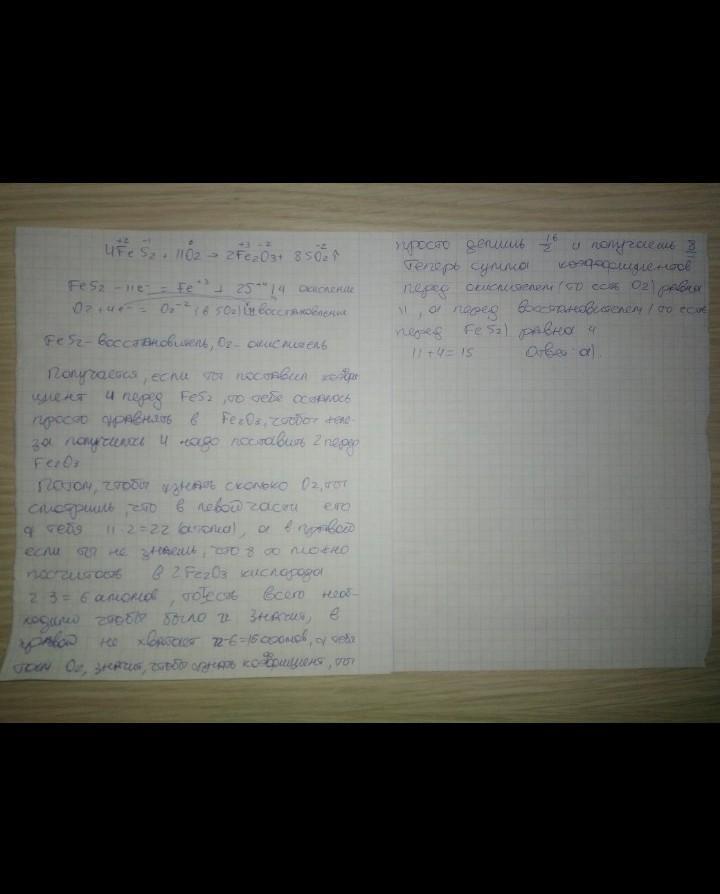 +2 -1 0 +3 -2 -2
4FeS2 + 11O2 → 2Fe2O3 + 8SO2↑
FeS2 - 11e⁻ = Fe⁺³ + 2S⁺⁴ | 4 окисление
O2 + 4e⁻ = O2⁻² (в SO2) | 11 восстановление
FeS2 - восстановитель, O2 - окислитель
Получается, если ты поставил коэффи
циент 4 перед FeS2, то тебе осталось
просто уравнять в Fe2O3, чтобы желе-
за получилось 4 надо поставить 2 перед
Fe2O3
Потом, чтобы узнать сколько O2, ты
смотришь, что в левой части его
у тебя 11·2=22 (атома), а в правой
если ты не знаешь, что 8 то можно
посчитать в 2Fe2O3 кислорода
2·3=6 атомов, то есть всего необ-
ходимо чтобы было 22 значит, в
правой не хватает 22-6=16 атомов, у тебя
там O2, значит, чтобы узнать коэффициент, ты
просто делишь 16/2 и получаешь 8
Теперь сумма коэффициентов
перед окислителем (то есть O2) равна
11, а перед восстановителем (то есть
перед FeS2) равна 4
11+4=15 Ответ: а).